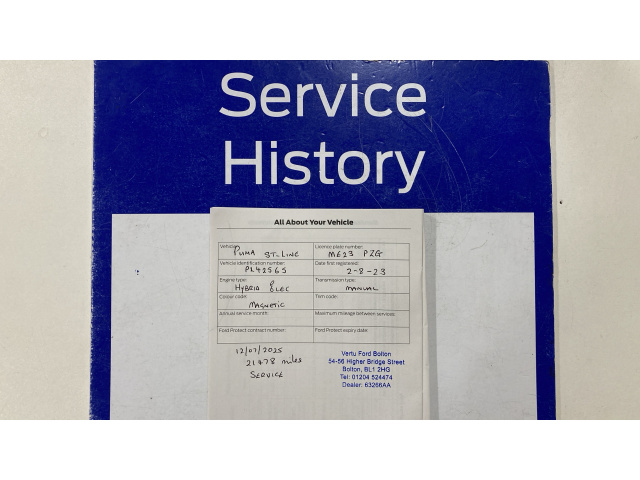 Service
History
All About Your Vehicle
Vehicle: PUMA ST-LINE
Licence plate number: ME23 PZG
Vehicle identification number: PL42565
Date first registered: 2-8-23
Engine type: HYBRID ELEC
Transmission type: MANUAL
Colour code: MAGNETIC
Trim code:
Annual service month:
Maximum mileage between services:
Ford Protect contract number:
Ford Protect expiry date:
12/07/2025
21478 miles
SERVICE
Vertu Ford Bolton
54-56 Higher Bridge Street
Bolton, BL1 2HG
Tel: 01204 524474
Dealer: 63266AA